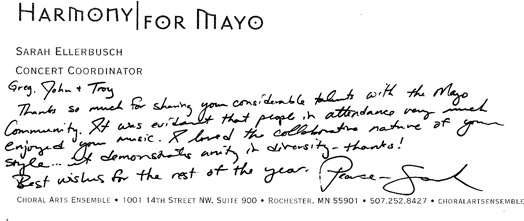 HARMONY|FOR MAYO
SARAH ELLERBUSCH
CONCERT COORDINATOR
Greg, John + Troy
Thanks so much for sharing your considerable talents with the Mayo
Community. It was evident that people in attendance very much
enjoyed your music. I loved the collaborative nature of your
style... it demonstrates unity in diversity - thanks!
Best wishes for the rest of the year. Peace - Sarah
CHORAL ARTS ENSEMBLE • 1001 14TH STREET NW, SUITE 900 • ROCHESTER, MN 55901 • 507.252.8427 • CHORALARTSENSEMBLE